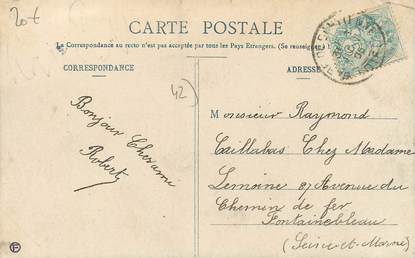 20€
CARTE POSTALE
La Correspondance au recto n'est pas acceptée par tous les Pays Etrangers. (Se renseigner
CORRESPONDANCE
ADRESSE
42
Bonjour Cher ami
Robert
Monsieur Raymond
Caillabas Chez Madame
Lemoine 87 Avenue du
Chemin de fer
Fontainebleau
(Seine-et-Marne)